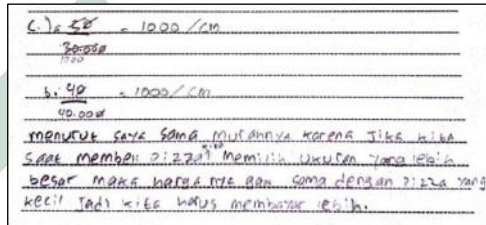 c.) a 50 = 1000 / cm
30.000
b. 40 = 1000 / cm
40.000
menurut saya sama murahnya karena Jika kita
saat membeli pizza kita memilih ukuran yang lebih
besar maka harga nya gak sama dengan pizza yang
kecil Jadi kita harus membayar lebih.